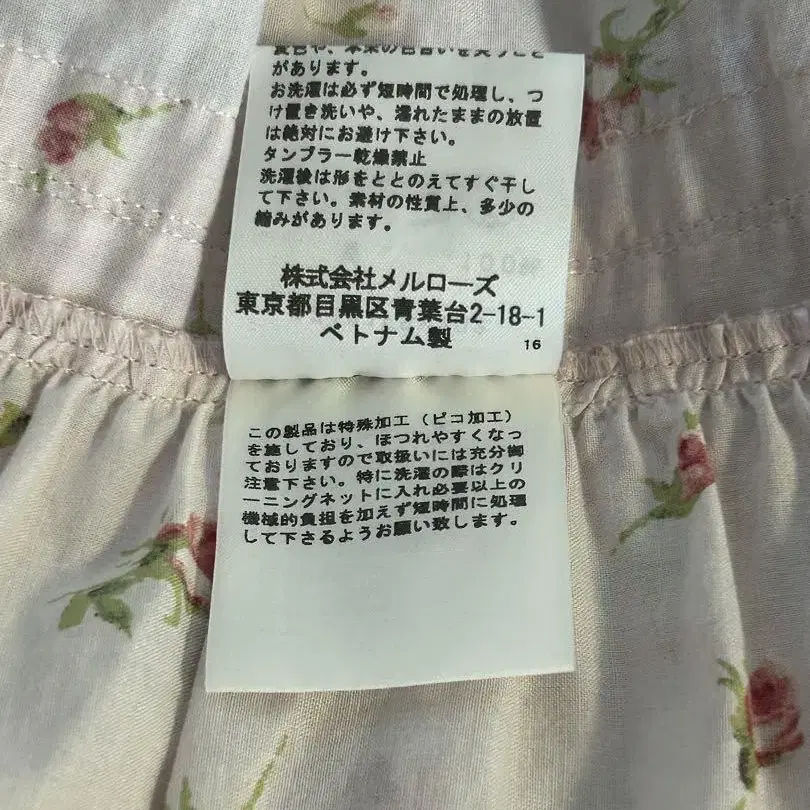 変色や、本来の色合いを失うこと
があります。
お洗濯は必ず短時間で処理し、つ
け置き洗いや、濡れたままの放置
は絶対にお避け下さい。
タンブラー乾燥禁止
洗濯後は形をととのえてすぐ干し
て下さい。素材の性質上、多少の
縮みがあります。
株式会社メルローズ
東京都目黒区青葉台2-18-1
ベトナム製
16
この製品は特殊加工（ピコ加工）
を施しており、ほつれやすくなっ
ておりますので取扱いには充分御
注意下さい。特に洗濯の際はクリ
ーニングネットに入れ必要以上の
機械的負担を加えず短時間に処理
して下さるようお願い致します。